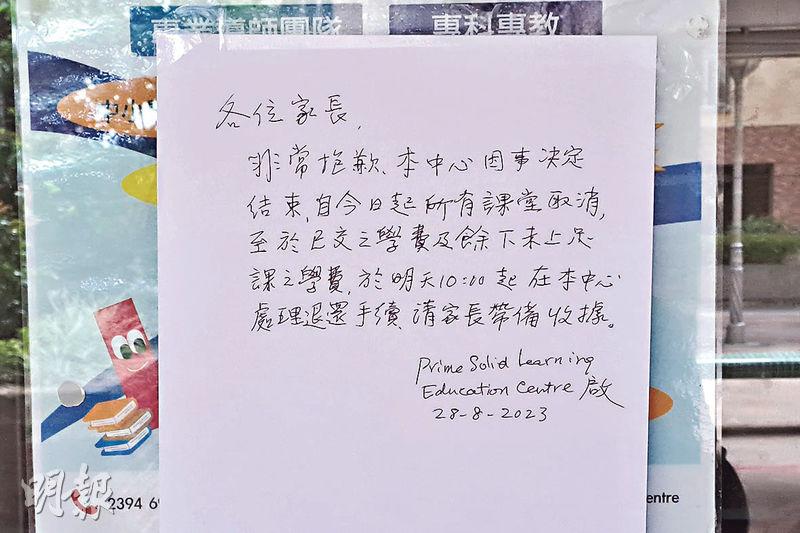 專業導師團隊 專科專教
中小
各位家長,
非常抱歉、本中心因事決定
結束,自今日起所有課堂取消,
至於已交之學費及餘下未上足
課之學費,於明天10:00起在本中心
處理退還手續,請家長帶備收據。
Prime Solid Learning
Education Centre 啟
28-8-2023
明報
2394 69
entre